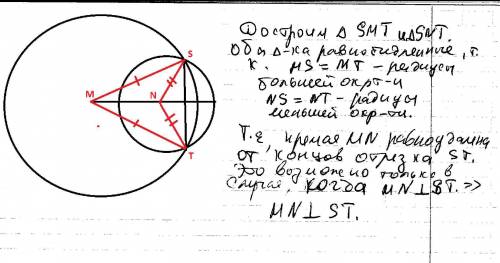 Достроим Δ SMT и ΔSNT.
Оба Δ-ка равнобедренные, т.
к. MS = MT - радиусы
большей окр-ти
NS = NT - радиусы
меньшей окр-ти.
Т.е. прямая MN равноудалена
от концов отрезка ST.
Это возможно только в
случае, когда MN⊥ST. =>
MN⊥ST.
S
M
N
T